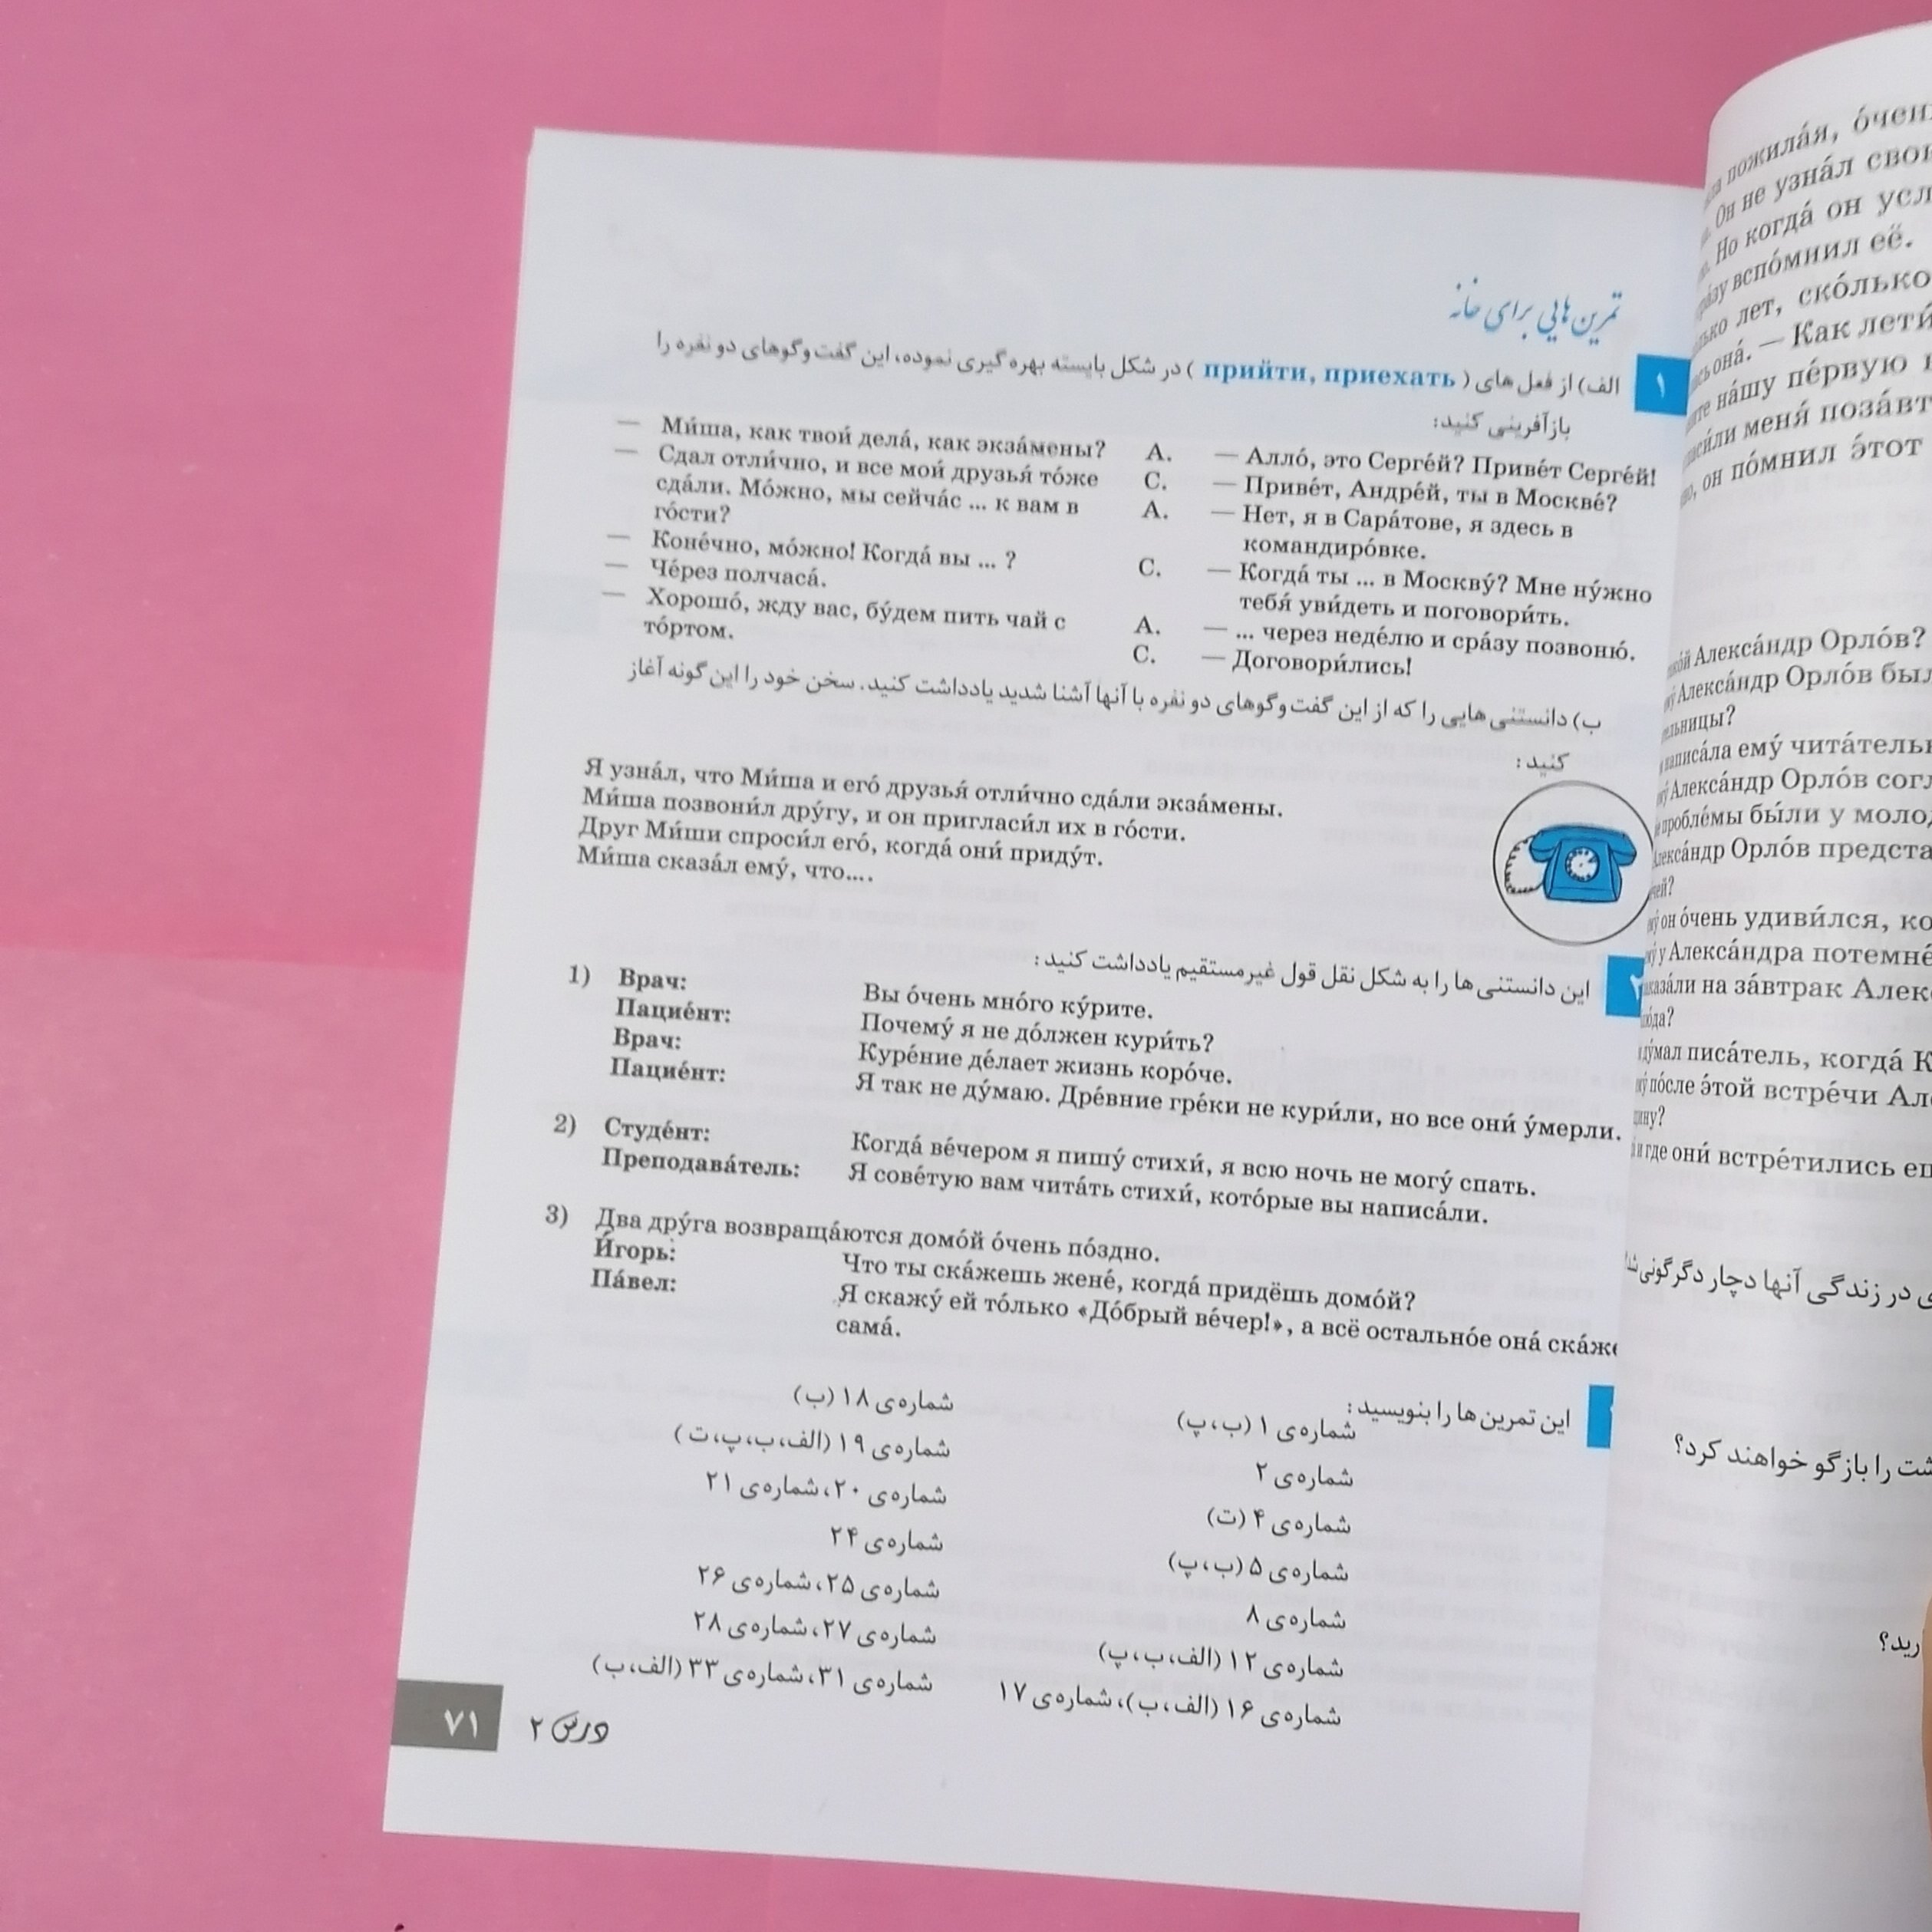 تمرین‌هایی برای خانه
۱
الف) از فعل های ( прийти, приехать ) در شکل بایسته بهره گیری نموده، این گفت‌وگوهای دو نفره را
بازآفرینی کنید:
— Ми́ша, как твои́ дела́, как экза́мены?
— Сдал отли́чно, и все мои́ друзья́ то́же
сда́ли. Мо́жно, мы сейча́с ... к вам в
го́сти?
— Коне́чно, мо́жно! Когда́ вы ... ?
— Че́рез полчаса́.
— Хорошо́, жду вас, бу́дем пить чай с
то́ртом.
А. — Алло́, это Серге́й? Приве́т Серге́й!
С. — Приве́т, Андре́й, ты в Москве́?
А. — Нет, я в Сара́тове, я здесь в
командиро́вке.
С. — Когда́ ты ... в Москву́? Мне ну́жно
тебя́ уви́деть и поговори́ть.
А. — ... через неде́лю и сра́зу позвоню́.
С. — Договори́лись!
ب) دانستنی هایی را که از این گفت‌وگوهای دو نفره با آنها آشنا شدید یادداشت کنید. سخن خود را این گونه آغاز
کنید:
Я узна́л, что Ми́ша и его́ друзья́ отли́чно сда́ли экза́мены.
Ми́ша позвони́л дру́гу, и он пригласи́л их в го́сти.
Друг Ми́ши спроси́л его́, когда́ они́ приду́т.
Ми́ша сказа́л ему́, что....
۲
این دانستنی ها را به شکل نقل قول غیرمستقیم یادداشت کنید:
1) Врач: Вы о́чень мно́го ку́рите.
Пацие́нт: Почему́ я не до́лжен кури́ть?
Врач: Куре́ние де́лает жизнь коро́че.
Пацие́нт: Я так не ду́маю. Дре́вние гре́ки не кури́ли, но все они́ у́мерли.
2) Студе́нт: Когда́ ве́чером я пишу́ стихи́, я всю ночь не могу́ спать.
Преподава́тель: Я сове́тую вам чита́ть стихи́, кото́рые вы написа́ли.
3) Два дру́га возвраща́ются домо́й о́чень по́здно.
И́горь: Что ты ска́жешь жене́, когда́ придёшь домо́й?
Па́вел: Я скажу́ ей то́лько «До́брый ве́чер!», а всё остально́е она́
сама́.
این تمرین ها را بنویسید:
شماره‌ی ۱ (ب، پ)
شماره‌ی ۲
شماره‌ی ۴ (ت)
شماره‌ی ۵ (ب، پ)
شماره‌ی ۸
شماره‌ی ۱۲ (الف، ب، پ)
شماره‌ی ۱۶ (الف، ب)، شماره‌ی ۱۷
شماره‌ی ۱۸ (ب)
شماره‌ی ۱۹ (الف، ب، پ، ت)
شماره‌ی ۲۰، شماره‌ی ۲۱
شماره‌ی ۲۴
شماره‌ی ۲۵، شماره‌ی ۲۶
شماره‌ی ۲۷، شماره‌ی ۲۸
شماره‌ی ۳۱، شماره‌ی ۳۳ (الف، ب)
درس ۲
۷۱
пожила́я,
Он не узна́л
Но когда́ он
вспо́мнил её.
лет, ско́лько
она́. — Как
на́шу пе́рвую
меня́
он по́мнил э́тот
Алекса́ндр Орло́в?
Алекса́ндр Орло́в
написа́ла ему́
Алекса́ндр Орло́в
пробле́мы бы́ли у
Алекса́ндр Орло́в
он о́чень удиви́лся,
у Алекса́ндра
на за́втрак
писа́тель, когда́
по́сле э́той встре́чи
и где они́ встре́тились
در زندگی آنها دچار دگرگونی
را بازگو خواهند کرد؟